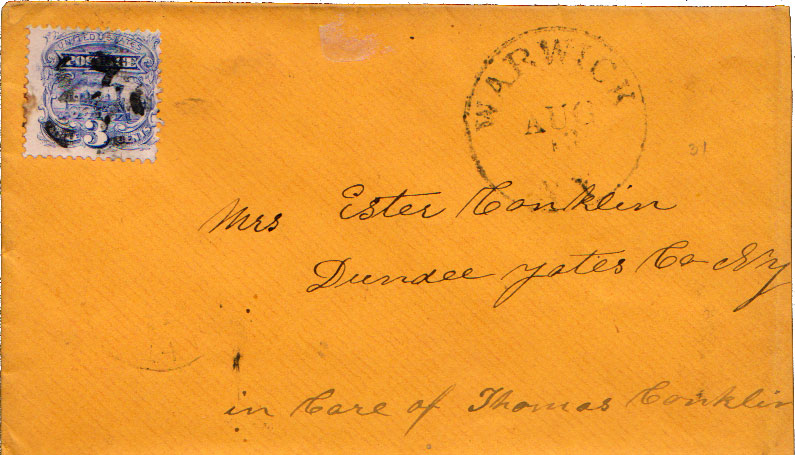 UNITED STATES
POSTAGE
3 CENTS
WARWICK
AUG
N.Y.
31
Mrs Ester Conklin
Dundee Yates Co Ny
in Care of Thomas Conklin